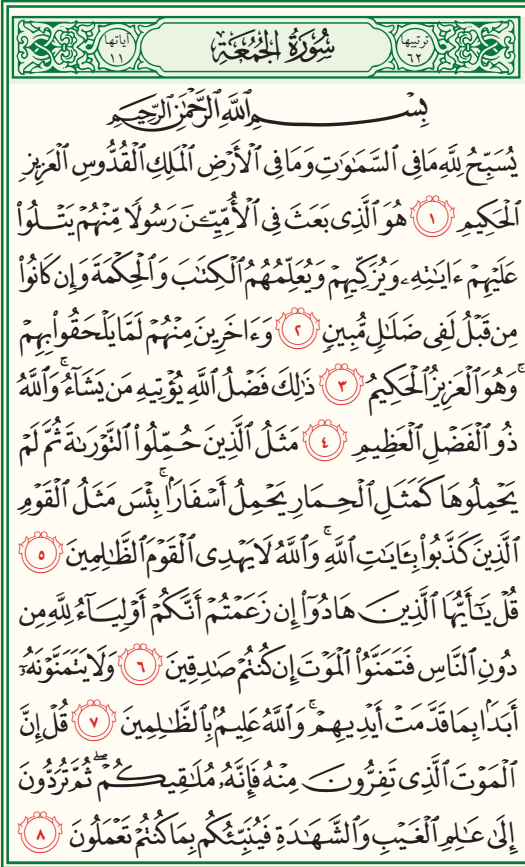 ترتيبها ٦٢ سُورَةُ الجُمُعَة آياتها ١١
بِسْمِ ٱللَّهِ ٱلرَّحْمَٰنِ ٱلرَّحِيمِ
يُسَبِّحُ لِلَّهِ مَا فِى ٱلسَّمَٰوَٰتِ وَمَا فِى ٱلْأَرْضِ ٱلْمَلِكِ ٱلْقُدُّوسِ ٱلْعَزِيزِ
ٱلْحَكِيمِ ١ هُوَ ٱلَّذِى بَعَثَ فِى ٱلْأُمِّيِّـۧنَ رَسُولًا مِّنْهُمْ يَتْلُوا۟
عَلَيْهِمْ ءَايَٰتِهِۦ وَيُزَكِّيهِمْ وَيُعَلِّمُهُمُ ٱلْكِتَٰبَ وَٱلْحِكْمَةَ وَإِن كَانُوا۟
مِن قَبْلُ لَفِى ضَلَٰلٍ مُّبِينٍ ٢ وَءَاخَرِينَ مِنْهُمْ لَمَّا يَلْحَقُوا۟ بِهِمْ
ۚ وَهُوَ ٱلْعَزِيزُ ٱلْحَكِيمُ ٣ ذَٰلِكَ فَضْلُ ٱللَّهِ يُؤْتِيهِ مَن يَشَآءُ ۚ وَٱللَّهُ
ذُو ٱلْفَضْلِ ٱلْعَظِيمِ ٤ مَثَلُ ٱلَّذِينَ حُمِّلُوا۟ ٱلتَّوْرَىٰةَ ثُمَّ لَمْ
يَحْمِلُوهَا كَمَثَلِ ٱلْحِمَارِ يَحْمِلُ أَسْفَارًۢا ۚ بِئْسَ مَثَلُ ٱلْقَوْمِ
ٱلَّذِينَ كَذَّبُوا۟ بِـَٔايَٰتِ ٱللَّهِ ۚ وَٱللَّهُ لَا يَهْدِى ٱلْقَوْمَ ٱلظَّٰلِمِينَ ٥
قُلْ يَٰٓأَيُّهَا ٱلَّذِينَ هَادُوٓا۟ إِن زَعَمْتُمْ أَنَّكُمْ أَوْلِيَآءُ لِلَّهِ مِن
دُونِ ٱلنَّاسِ فَتَمَنَّوُا۟ ٱلْمَوْتَ إِن كُنتُمْ صَٰدِقِينَ ٦ وَلَا يَتَمَنَّوْنَهُۥٓ
أَبَدًۢا بِمَا قَدَّمَتْ أَيْدِيهِمْ ۚ وَٱللَّهُ عَلِيمٌۢ بِٱلظَّٰلِمِينَ ٧ قُلْ إِنَّ
ٱلْمَوْتَ ٱلَّذِى تَفِرُّونَ مِنْهُ فَإِنَّهُۥ مُلَٰقِيكُمْ ۖ ثُمَّ تُرَدُّونَ
إِلَىٰ عَٰلِمِ ٱلْغَيْبِ وَٱلشَّهَٰدَةِ فَيُنَبِّئُكُم بِمَا كُنتُمْ تَعْمَلُونَ ٨